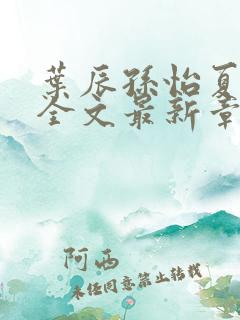 葉辰孫怡夏
全文最新章
阿西
未经同意禁止转载